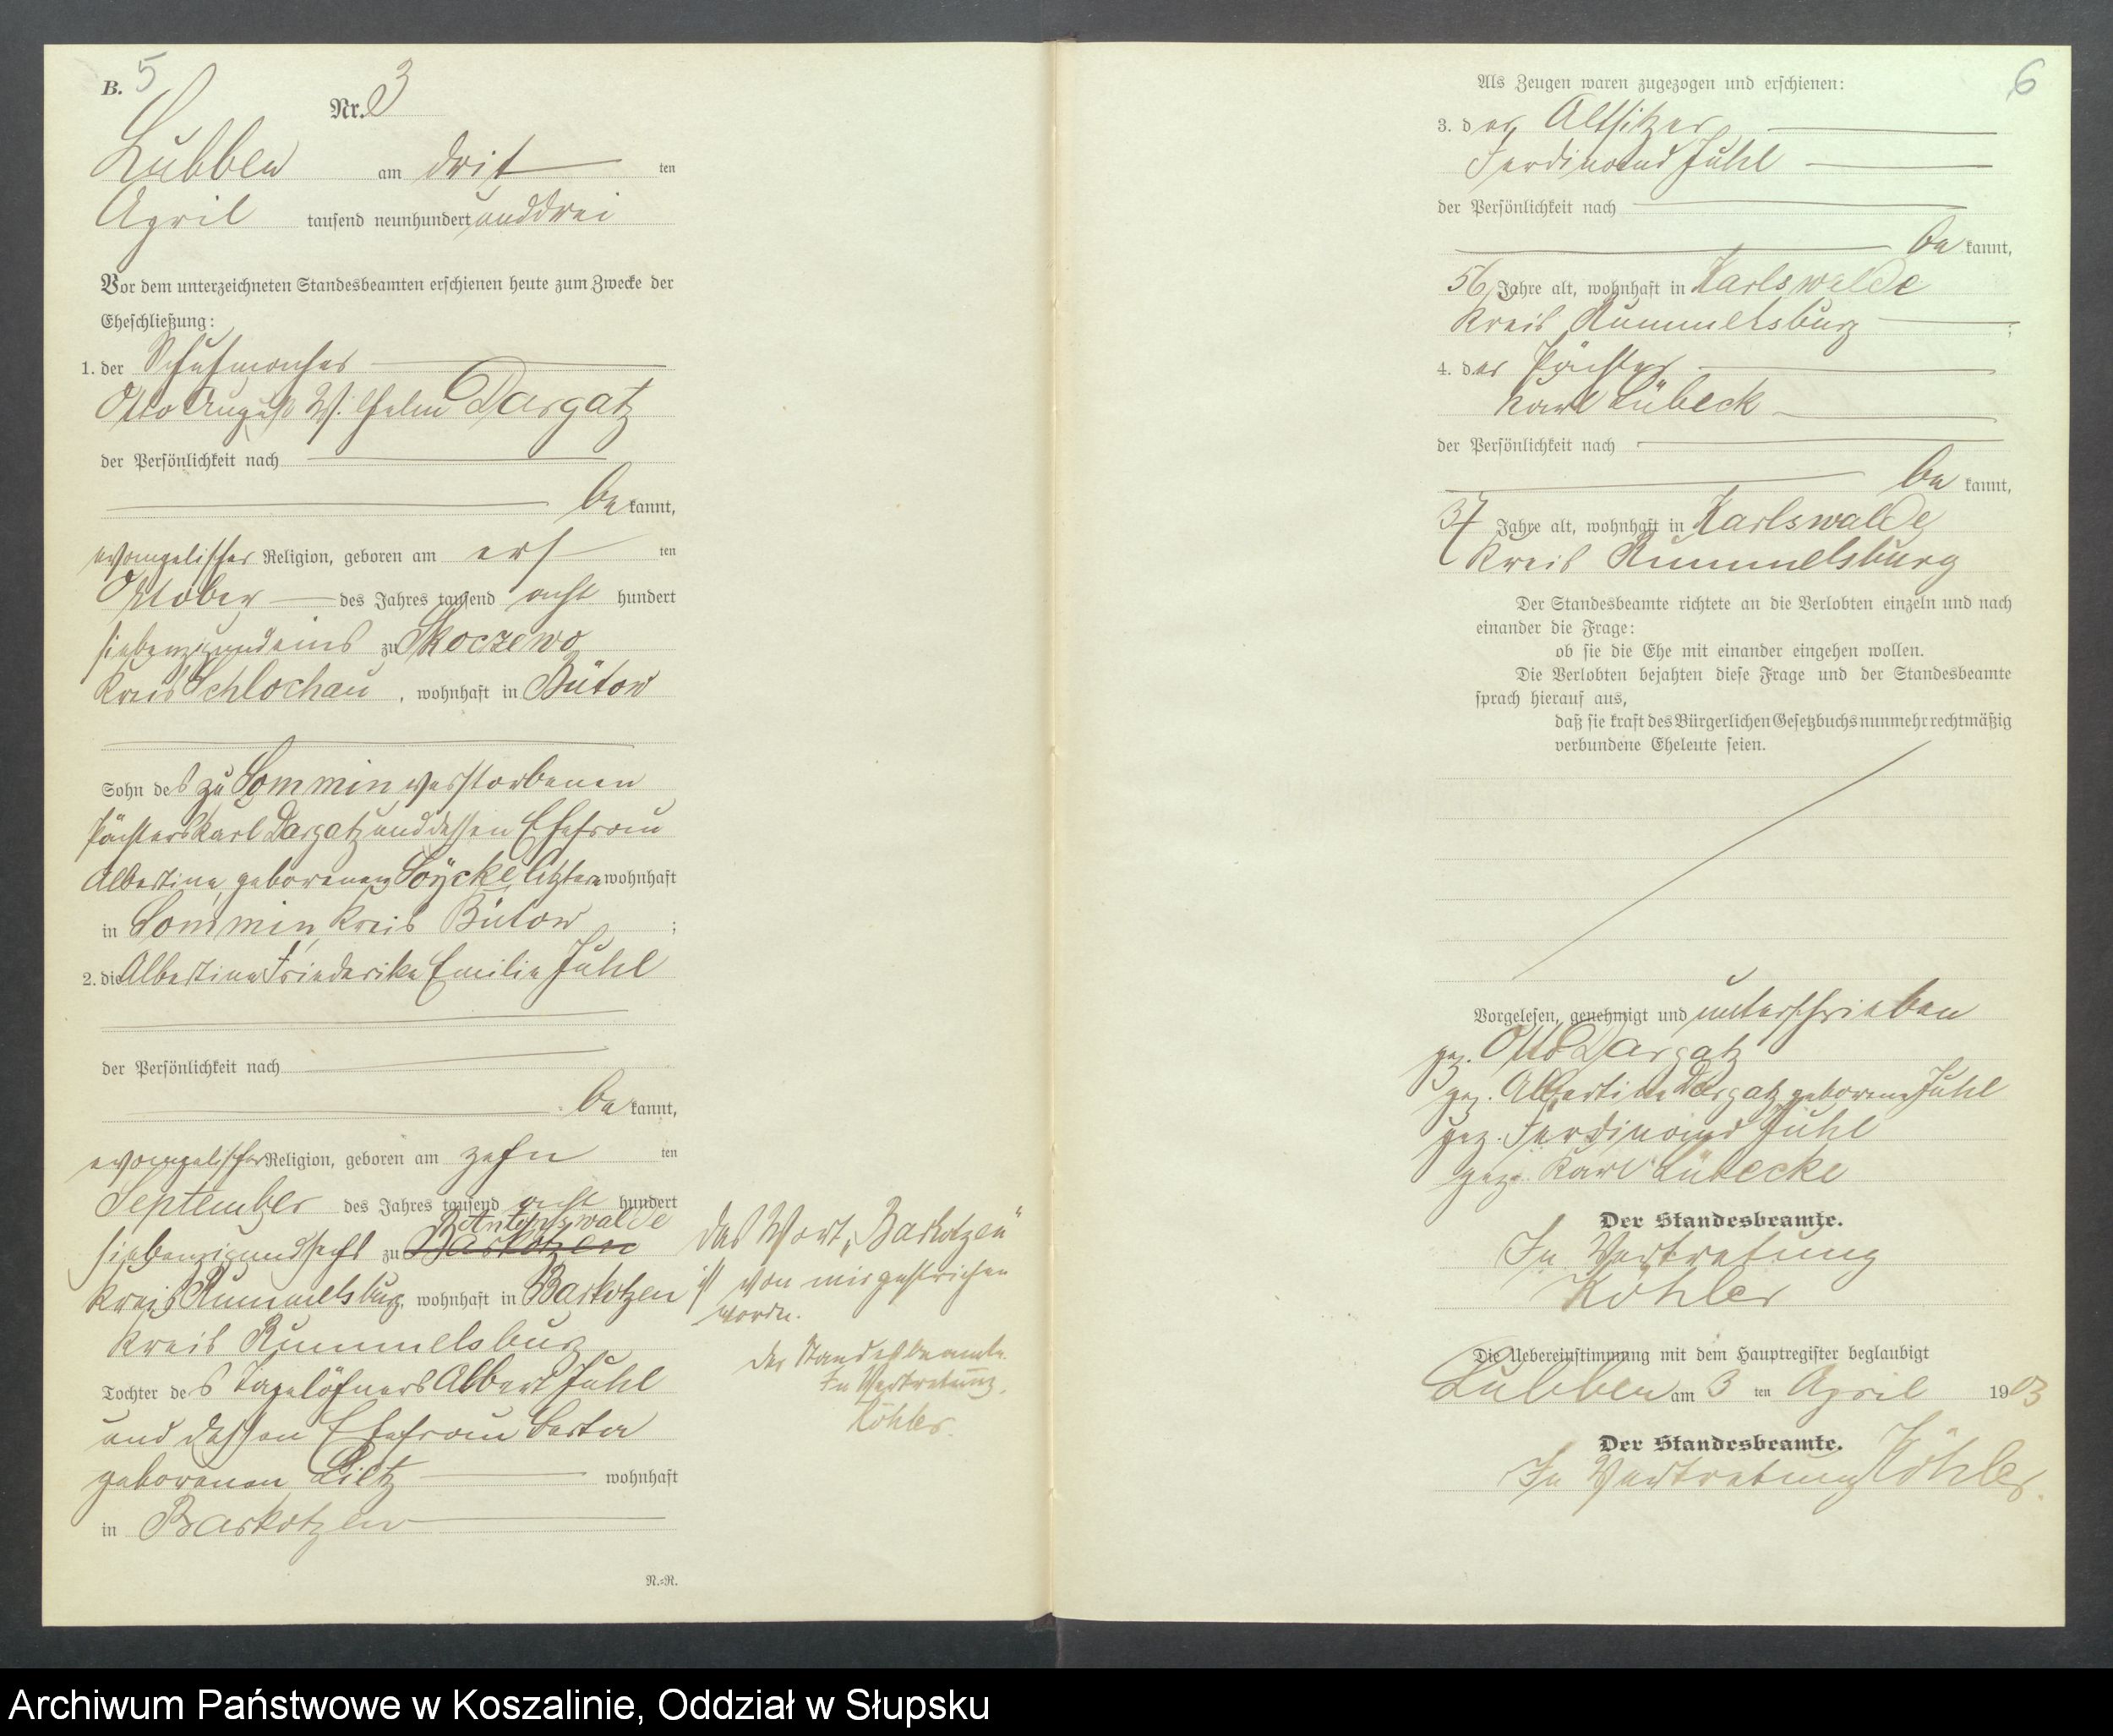 B. 5
Nr. 3
Lubben am drit ten
April tausend neunhundert unddrei
Vor dem unterzeichneten Standesbeamten erschienen heute zum Zwecke der
Eheschließung:
1. der Schuhmacher
Otto August Wilhelm Dargatz
der Persönlichkeit nach
be kannt,
evangelischer Religion, geboren am ers ten
Oktober des Jahres tausend acht hundert
siebenzigundeins zu Skoczewo
Kreis Schlochau, wohnhaft in Bütow
Sohn des zu Sommin verstorbenen
Pächters Karl Dargatz und dessen Ehefrau
Albertine, geborenen Söycke letztere wohnhaft
in Sommin, Kreis Bütow ;
2. die Albertine Friederike Emilie Juhl
der Persönlichkeit nach
be kannt,
evangelischer Religion, geboren am zehn ten
September des Jahres tausend acht hundert
siebenzigundsechs zu Barkotzen
Kreis Rummelsburg, wohnhaft in Barkotzen
Kreis Rummelsburg
Tochter des Tagelöhners Albert Juhl
und dessen Ehefrau
geborenen Lietz wohnhaft
in Barkotzen
R.=R.
Das Wort „Barkotzen“
ist von mir gestrichen
worden.
Der Standesbeamte.
In Vertretung.
Köhler.
6
Als Zeugen waren zugezogen und erschienen:
3. der Altsitzer
Ferdinand Juhl
der Persönlichkeit nach
be kannt,
56 Jahre alt, wohnhaft in Karlswalde
Kreis Rummelsburg ;
4. der Pächter
Karl Lübeck
der Persönlichkeit nach
be kannt,
37 Jahre alt, wohnhaft in Karlswalde
Kreis Rummelsburg
Der Standesbeamte richtete an die Verlobten einzeln und nach
einander die Frage:
ob sie die Ehe mit einander eingehen wollen.
Die Verlobten bejahten diese Frage und der Standesbeamte
sprach hierauf aus,
daß sie kraft des Bürgerlichen Gesetzbuchs nunmehr rechtmäßig
verbundene Eheleute seien.
Vorgelesen, genehmigt und unterschrieben
gez. Otto Dargatz
gez. Albertine Dargatz geborene Juhl
gez. Ferdinand Juhl
gez. Karl Lübecke
Der Standesbeamte.
In Vertretung
Köhler
Die Uebereinstimmung mit dem Hauptregister beglaubigt
Lubben am 3 ten April 1903
Der Standesbeamte.
In Vertretung Köhler.
Archiwum Państwowe w Koszalinie, Oddział w Słupsku